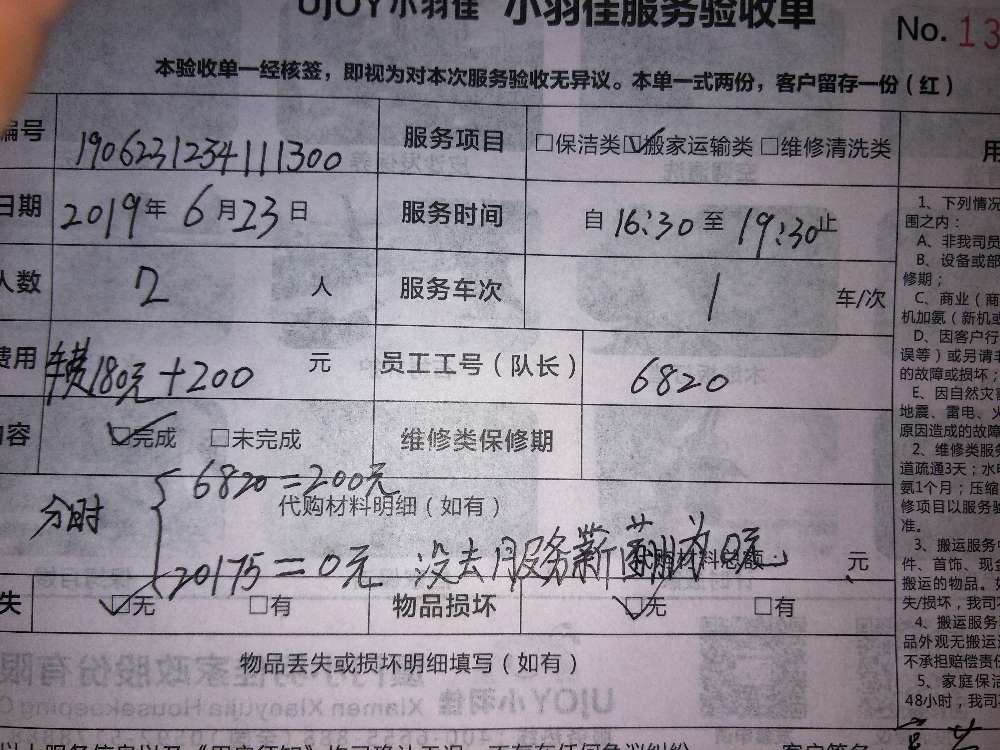 UJOY小羽佳 小羽佳服务验收单
No. 13
本验收单一经核签，即视为对本次服务验收无异议。本单一式两份，客户留存一份（红）
编号 1906231234111300 服务项目 □保洁类 ☑搬家运输类 □维修清洗类
日期 2019年 6月23日 服务时间 自 16:30 至 19:30止
人数 2 人 服务车次 1 车/次
费用 180元+200 元 员工工号（队长） 6820
内容 ☑完成 □未完成 维修类保修期
分时 6820=200元
代购材料明细（如有）
20175=0元 没去服务薪 0元 代购材料总额: 元
失 ☑无 □有 物品损坏 ☑无 □有
物品丢失或损坏明细填写（如有）
1、下列情况
围之内：
A、非我司员
B、设备或部
修期；
C、商业（商
机加氨（新机或
D、因客户行
误等）或另请非
的故障或损坏；
E、因自然灾害
地震、雷电、火
原因造成的故障
2、维修类服务
道疏通3天；水电
氨1个月；压缩
修项目以服务验
准。
3、搬运服务中
件、首饰、现金
搬运的物品。如
失/损坏，我司
4、搬运服务
品外观无搬运
不承担赔偿责任
5、家庭保洁
48小时，我司